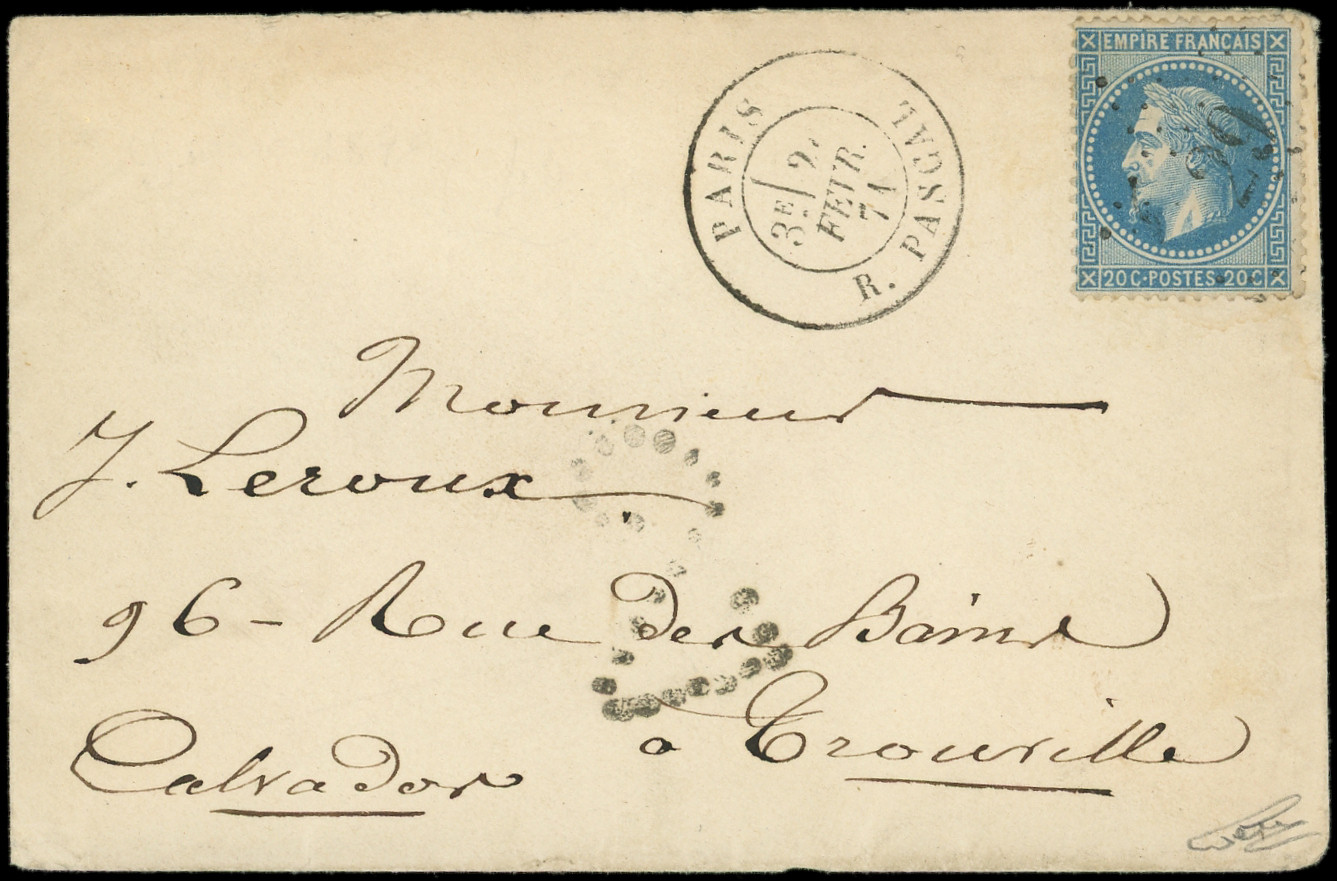 PARIS
3E 2
FEVR.
71
R. PASCAL
EMPIRE FRANÇAIS
29
20C·POSTES·20C
Monsieur
J. Leroux
2
96 - Rue des Bains
à Trouville
Calvados